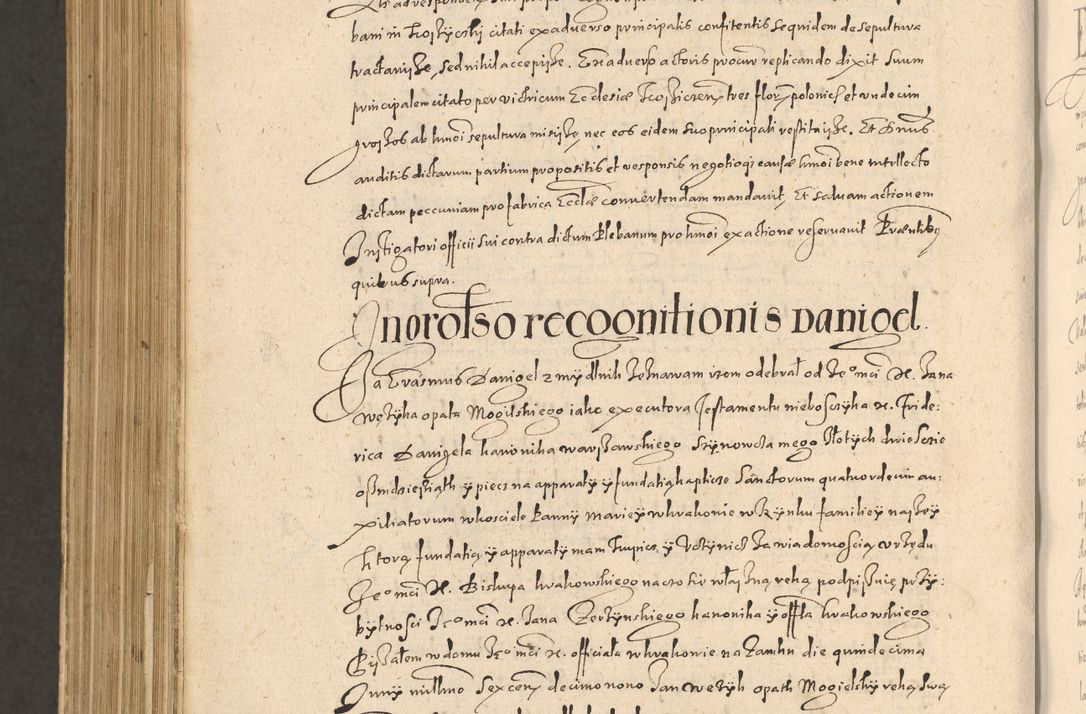 bani in Kosżyczky citati ex adverso principalis confitentis se quidem de sepultura
tractavisse, sed nihil accepisse. Ex adverso actoris procur replicando dixit suum
principalem citato per vitricum Ecclesiæ Kosziczen tres floren polonicos et undecim
grossos ab hmoi sepultura misisse nec eos eidem suo principali restituisse. Et Dnus
auditis dictarum partium propositis et responsis negotioqȝ causæ hmoi bene intellecto
dictam peccuniam pro fabrica Ecclæ convertendam mandavit, Et salvam actionem
Instigatori officii sui contra dictum Plebanum pro hmoi exactione reservavit Præntibus
quibus supra.
Ingrosso recognitionis Danigel.
Ja Erasmus Danigel z mydlnik zeznawam izem odebrał od Je° mci X. Jana
Wężyka opata Mogilskiego iako executora Testamentu niebosczyka X. Fride-
rica Danigela kanonika warszawskiego Szynowcza mego złotych dwiescie
osmdziesiąth y piecz na apparaty y fundatią kaplicze Sanctorum quatuordecim au:
xiliatorum w kosciele Panny Mariey w krakowie w Rynku familiey naszey
Ktorą fundatią y apparaty mam kupicz y Uczynicz za wiadomoscią urzędu
Je° mci X. Biskupa krakowskiego na czo się własną ręką podpisuię przy:
bytnosci Je° mci X. Jana Zerzynskiego kanonika y offła krakowskiego
Pisałem w domu Je° mci X. officiała w krakowie na Zamku die quindecima
Juny millmo sexcen decimo nono Jan Wężyk opath Mogielsky ręką swą